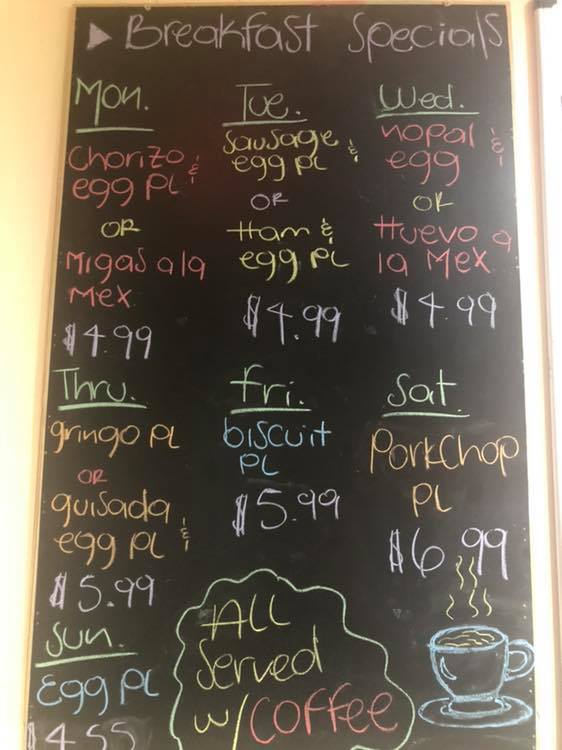 Breakfast Specials
Mon.
Chorizo &
egg PL
OR
Migas a la
Mex
$4.99
Tue.
Sausage &
egg PL
OR
Ham &
egg PL
$4.99
Wed.
nopal &
egg
OR
Huevo a
la Mex
$4.99
Thru.
gringo PL
OR
guisada &
egg PL
$5.99
Fri.
biscuit
PL
$5.99
Sat.
PorkChop
PL
$6.99
Sun.
Egg PL
$4.55
All
Served
w/ Coffee